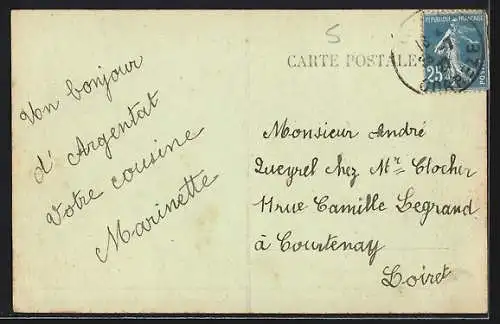 5
CARTE POSTALE
REPUBLIQUE FRANÇAISE
25
CORREZE
Un bonjour
d'Argentat
Votre cousine
Marinette
Monsieur André
Queyrel chez Mr Clocher
11 rue Camille Legrand
à Courtenay
Loiret